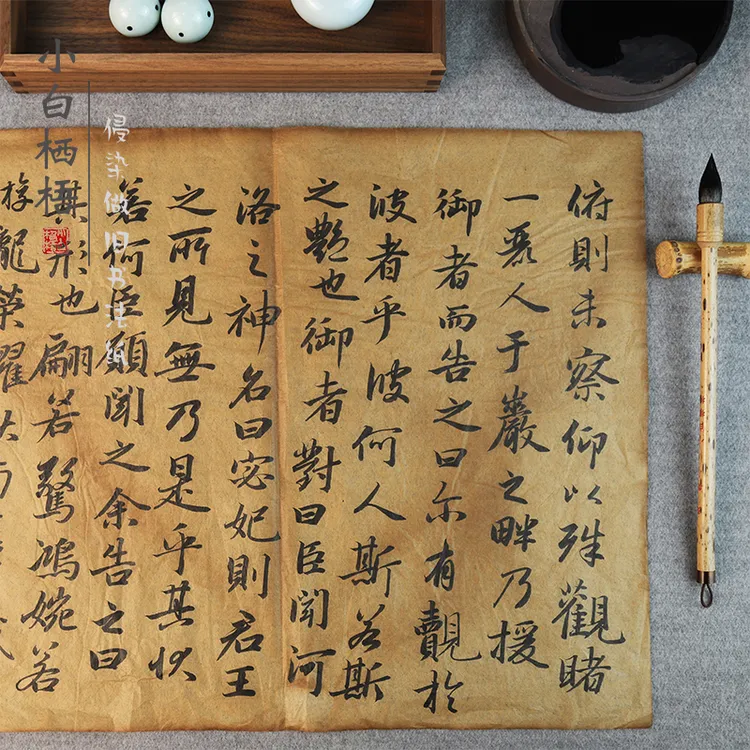 俯則未察仰以殊觀睹
一麗人于巖之畔乃援
御者而告之曰尓有覿於
彼者乎彼何人斯若斯
之艷也御者對曰臣聞河
洛之神名曰宓妃則君王
之所見無乃是乎其狀
若何臣願聞之余告之曰
其形也翩若驚鴻婉若
龍榮耀秋
小白栖栖
侵染做旧书法纸